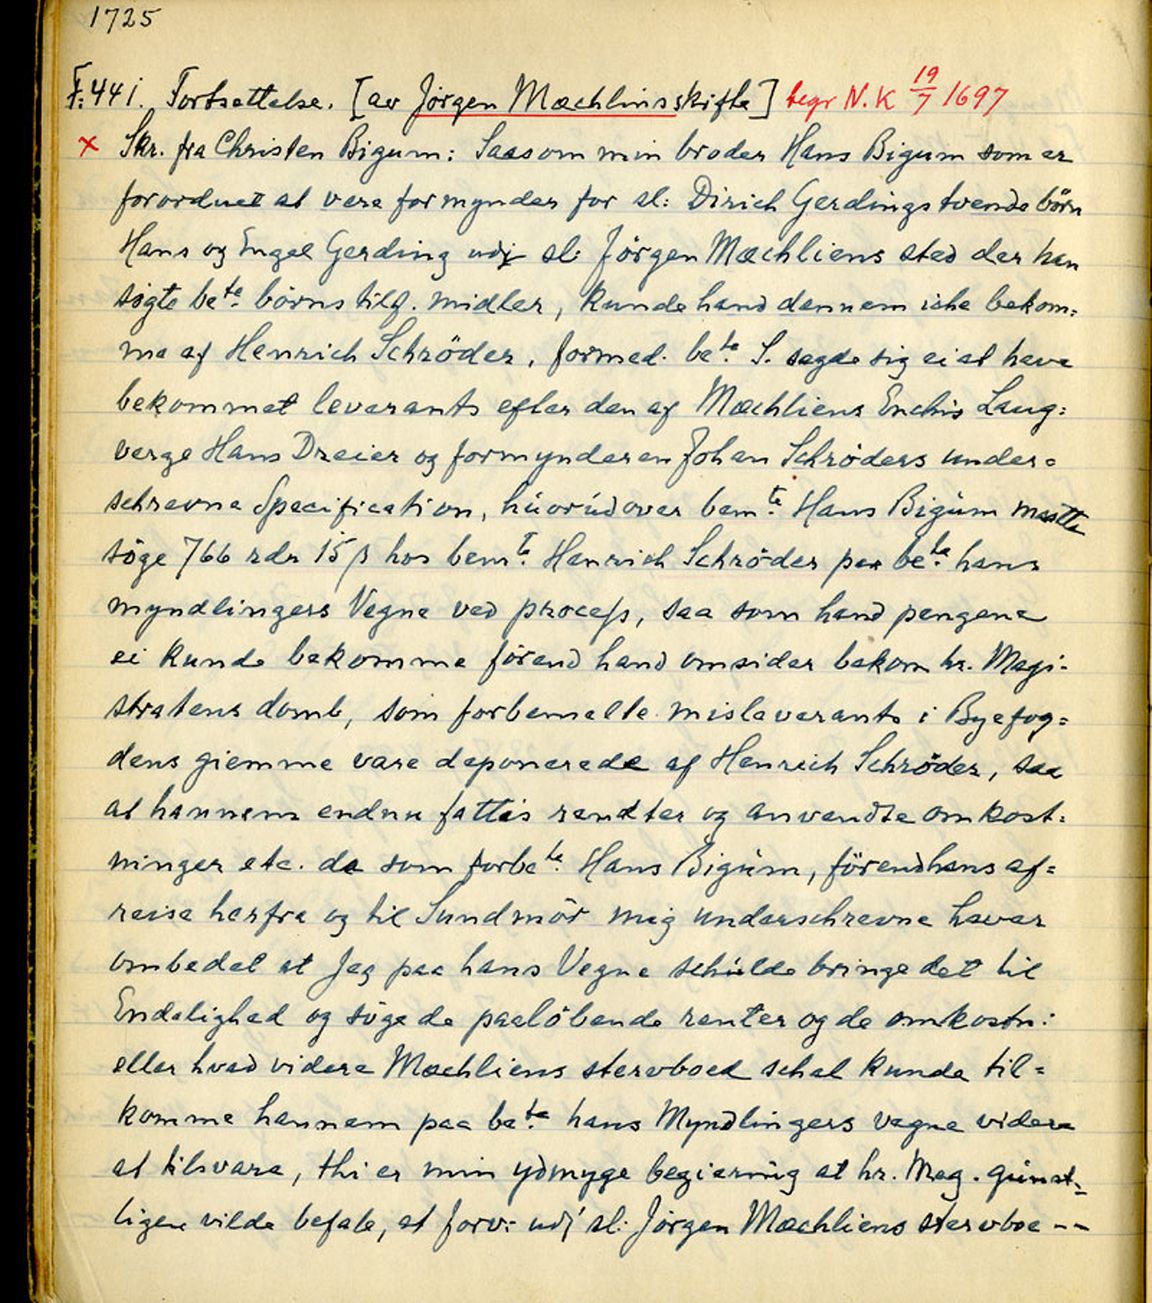 1725
F: 441. Fortsettelse. [av Jörgen Mæchlins skifte] begr N.K 19/7 1697
x Skr. fra Christen Bigum: Saasom min broder Hans Bigum som er
forordnet at vere formynder for sl: Dirich Gerdings tvende börn
Hans og Engel Gerding udj sl: Jörgen Mæchliens sted der han
sögte bete börns tilf. midler, kunde hand dennem iche bekom:
me af Henrich Schröder, formed. bete S. sagde sig ei at have
bekommet leverants efter den af Mæchliens Enchis Laug:
verge Hans Dreier og formynderen Johan Schröders under=
schrevne Specification, huorudover bemte Hans Bigum maatte
söge 766 rdr 15 β hos bemte Henrich Schröder paa bete hans
myndlingers Vegne ved process, saa som hand pengene
ei kunde bekomme förend hand omsider bekom hr. Magi-
stratens domb, som forbemelte misleverants i Byefog=
dens giemme vare deponerede af Henrich Schröder, saa
at hannem endnu fattis rendter og anvendte omkost:
ninger etc. da som forbete Hans Bigum, förend hans af=
reise herfra og til Sundmör mig underschrevne haver
ombedet at Jeg paa hans Vegne schulde bringe det til
Endelighed og söge de paalöbende renter og de omkostn:
eller hvad videre Mæchliens stervboed schal kunde til=
komme hannem paa bete hans Myndlingers vegne videre
at tilsvare, thi er min ydmyge begiering at hr. Mag. günst=
ligen vilde befale, at forv: udj sl: Jörgen Mæchliens stervboe --